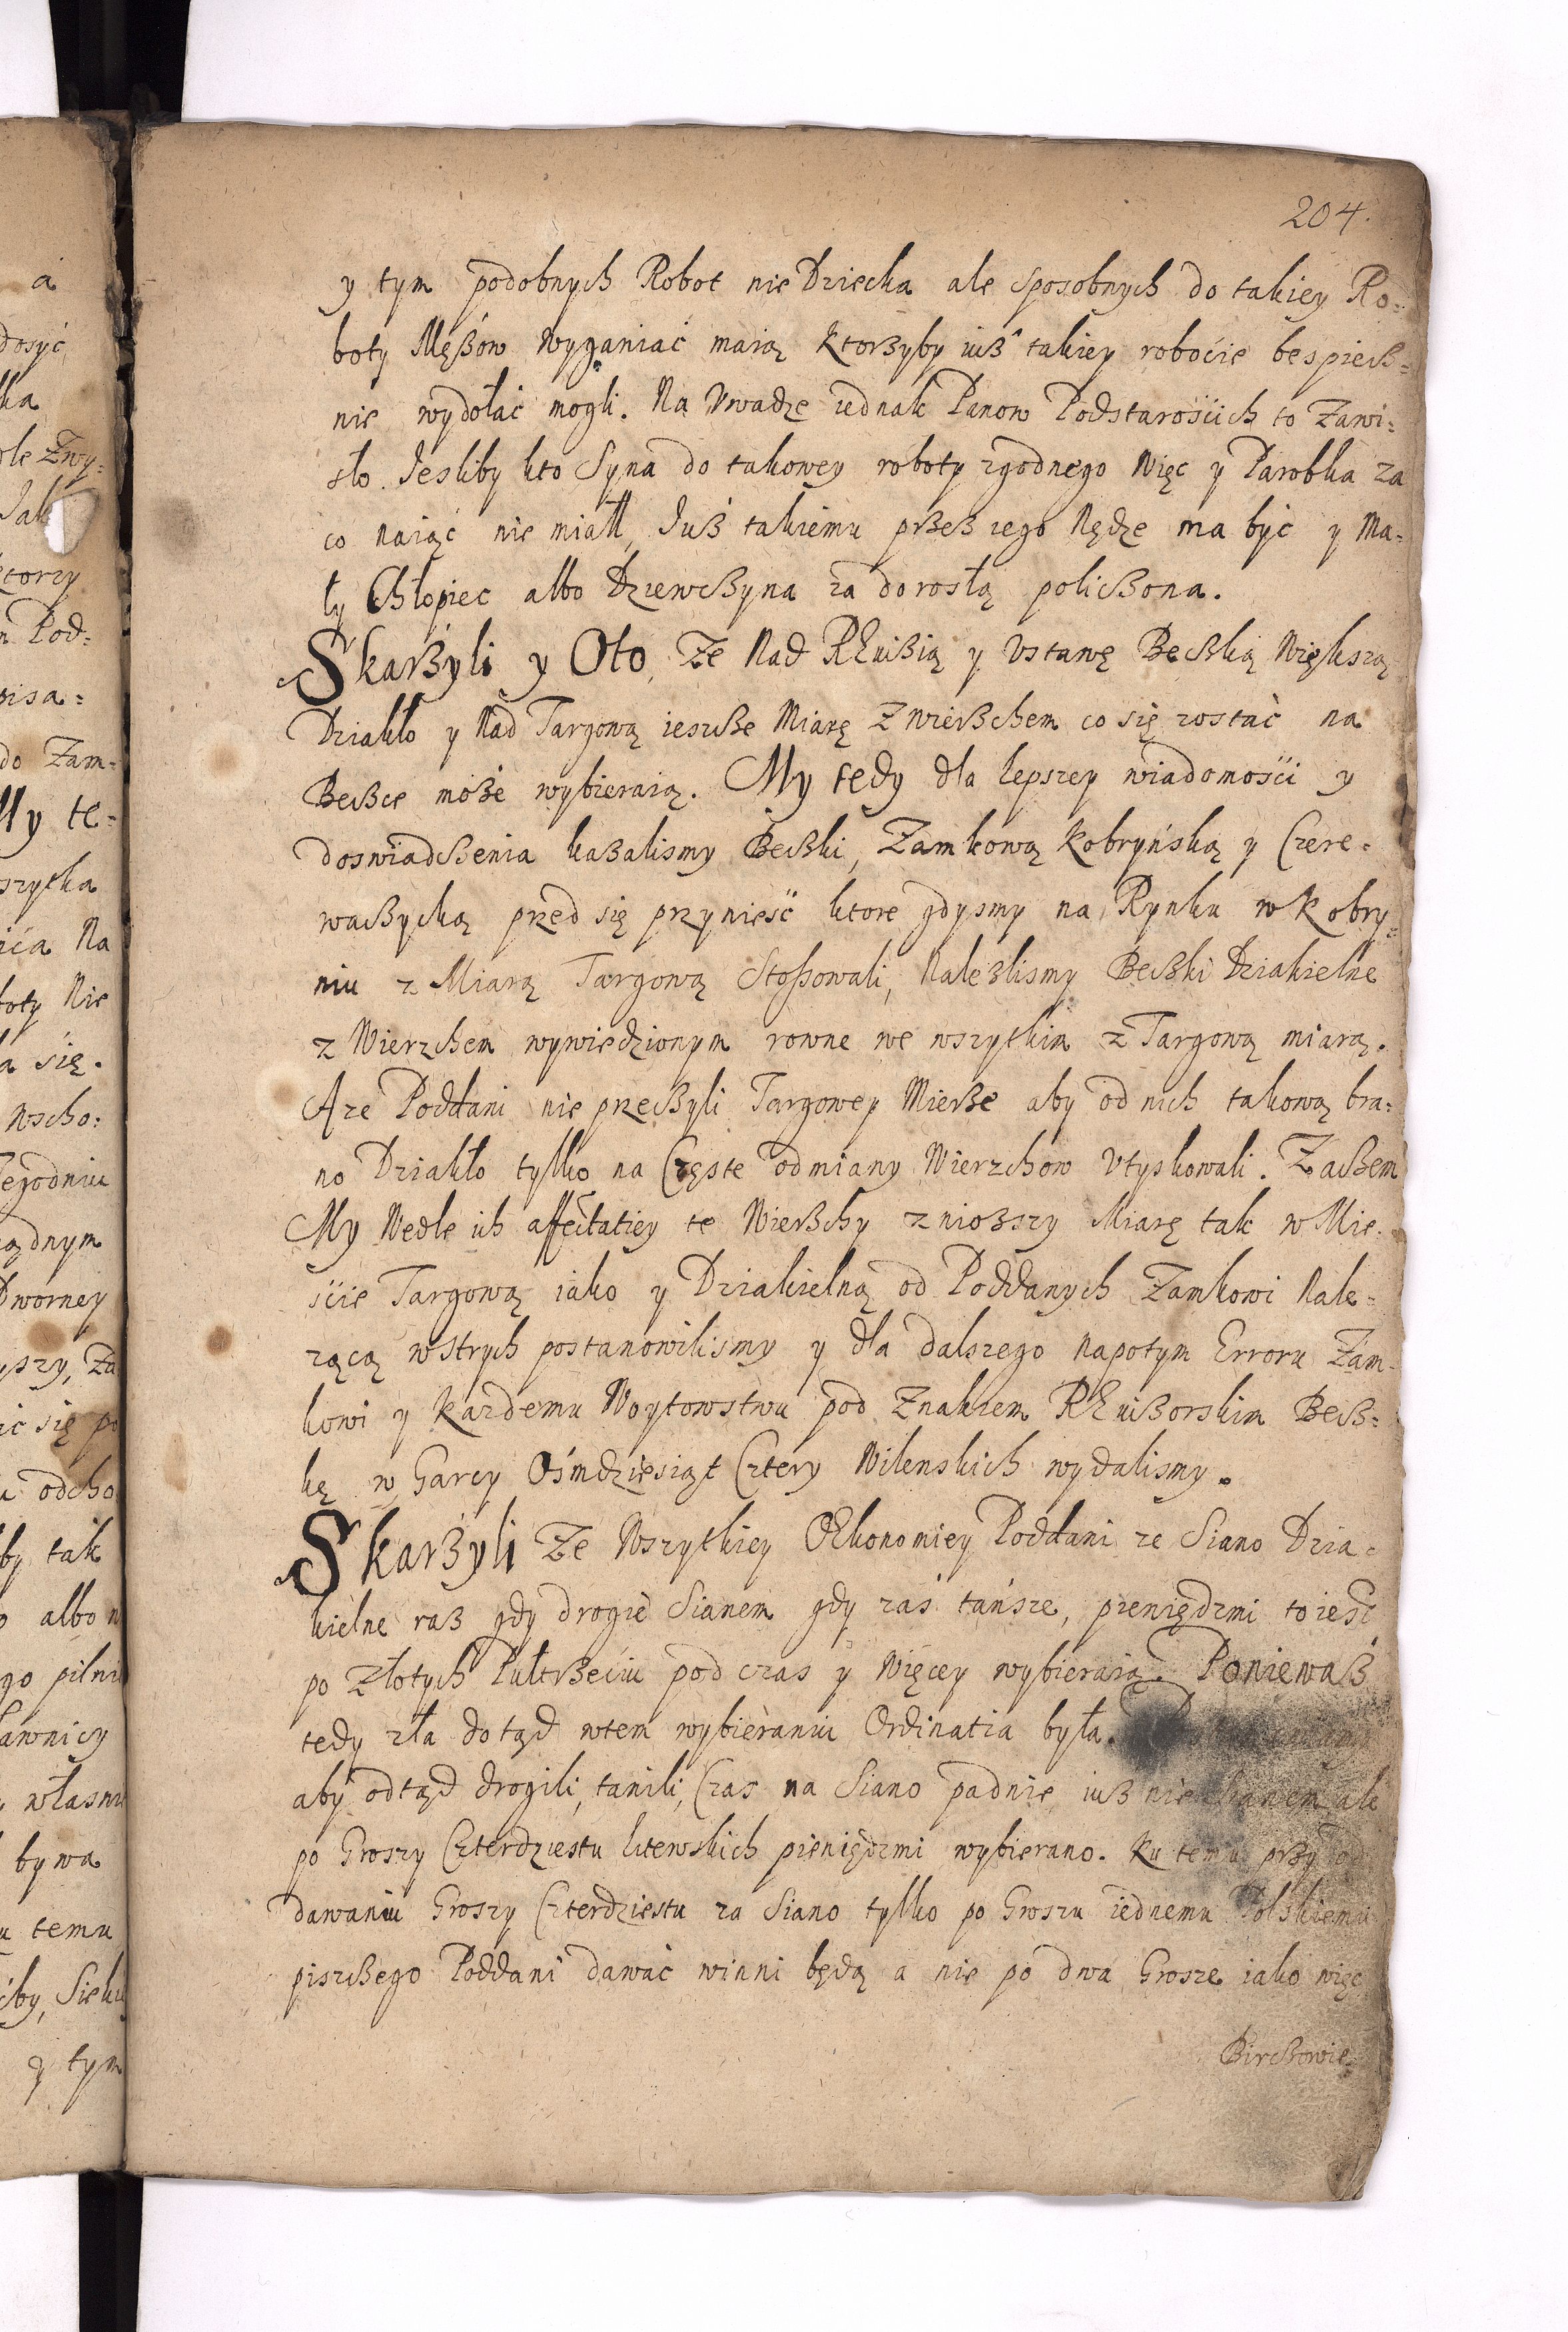 204.
y tym podobnych Robot nie Dziecka ale sposobnych do takiey Ro=
boty Mężów Wyganiać maią ktorzyby iuß takiey robocie bespiecß=
nie wydołać mogli. Na Vwadze iednak Panow Podstarosćich to Zawi=
sło. Jesliby kto Syna do takowey roboty zgodnego Więc y Parobka za
co naiąc nie miałł, Juß takiemu przeß iego Nędze ma być y Ma=
ły Chłopiec albo Dziewcßyna za dorosłą policßona.
Skarżyli y Oto, Ze Nad REwißią y Vstawę Becßką Większą
Dziakło y Nad Targową ieszcße Miarę z wierßchem co się zostać na
Becßce może wybieraią. My tedy dla lepszey wiadomosći y
doswiadcßenia kazalismy Becßki, Zamkową Kobryńską y Czere=
wacßycką przed się przynieść ktore gdysmy na Rynku w Kobry=
niu z Miarą Targową Stoßowali, Nalezlismy Becßki Dziakielne
z Wierzchem wywiedzionym rowne we wszytkim z Targową miarą.
A ze Poddani nie przecßyli Targowey Mierze aby od nich takową bra=
no Dziakło tylko na Częste odmiany Wierzchow Vtyskowali. Zacßem
My Wedle ich affectatiey te Wierßchy zniozszy Miarę tak w Mie=
śćie Targową iako y Dziakielną od Poddanych Zamkowi Nale=
żącą wstrych postanowilismy y dla dalszego napotym Erroru Zam=
kowi y Kazdemu Woytowstwu pod Znakiem REwißorskim Becß=
kę w Garcy Ośmdziesiąt Cztery Wilenskich wydalismy.
Skarżyli Ze Wszytkiey OEkonomiey Poddani ze Siano Dzia=
kielne raß gdy drogie Sianem gdy zaś tańsze, pieniędzmi to iest
po Złotych Pułtrzeciu pod czas y Więcey wybieraią. Poniewaß
tedy zła dotąd wtem wybieraniu Ordinatia była.
aby odtąd drogili, tanili, Czas na Siano padnie iuß nie Sianem ale
po Groszy Czterdziestu litewskich pieniędzmi wybierano. Ku temu przy od
dawaniu Groszy Czterdziestu za Siano tylko po Groszu iednemu Polskiemu
piszcßego Poddani dawać winni będą a nie po dwa Grosze iako więc
Bircßowie=